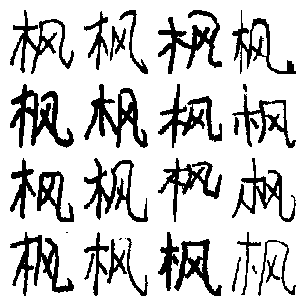 枫枫枫枫
枫枫枫枫
枫枫枫枫
枫枫枫枫